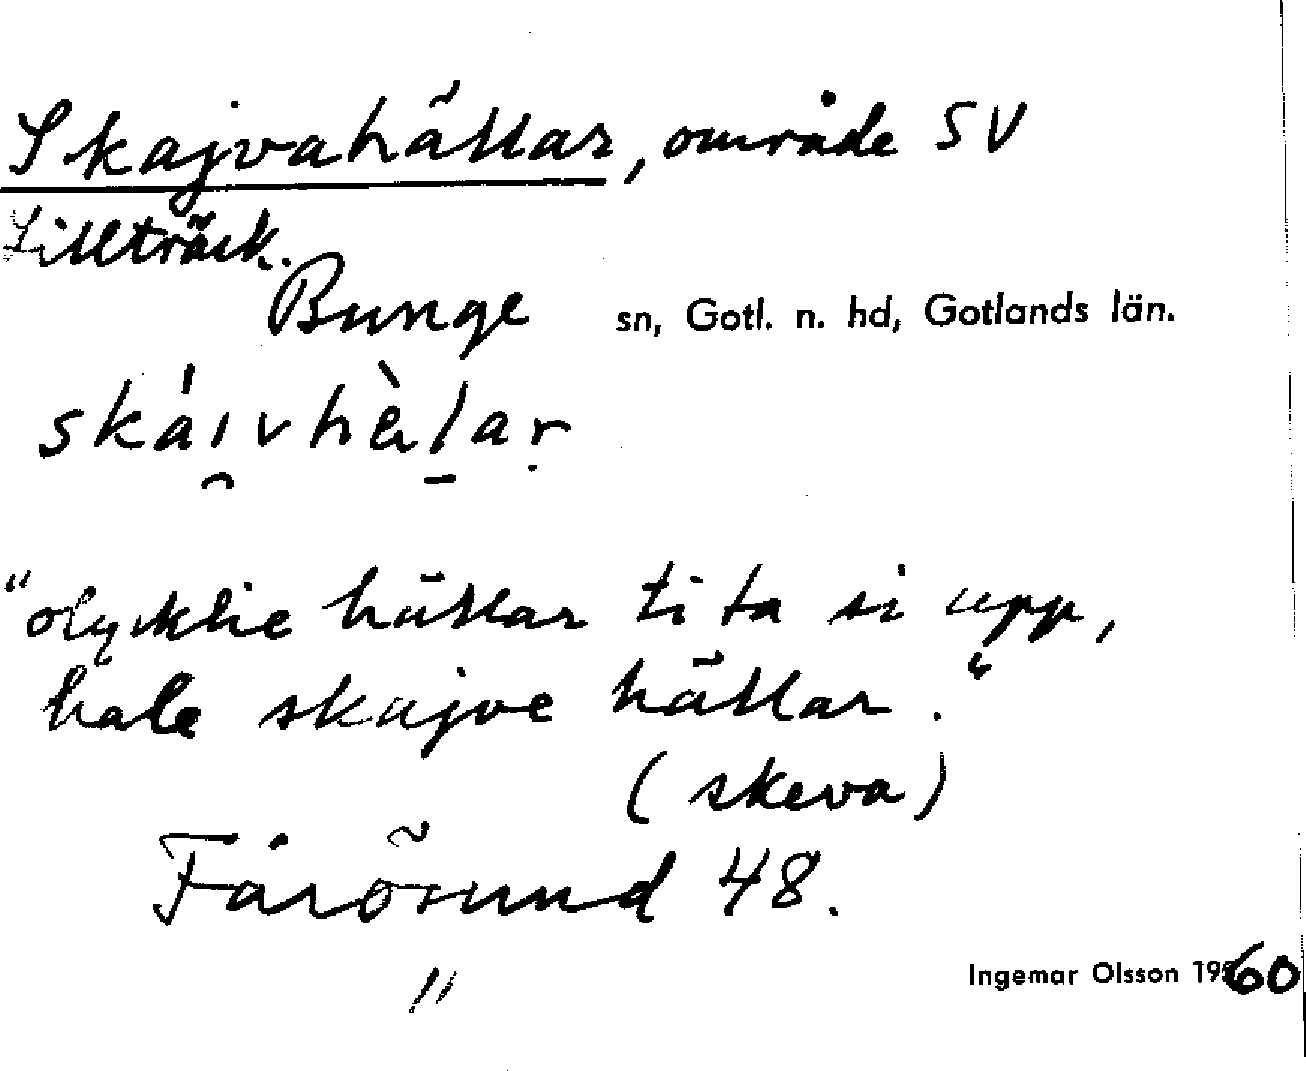 Skajvahällar, område SV
Lillträsk.
Bunge sn, Gotl. n. hd, Gotlands län.
"olycklie hällar ti ta si upp,
hale skajve hällar."
(skeva)
Fårösund 48.
"
Ingemar Olsson 1960